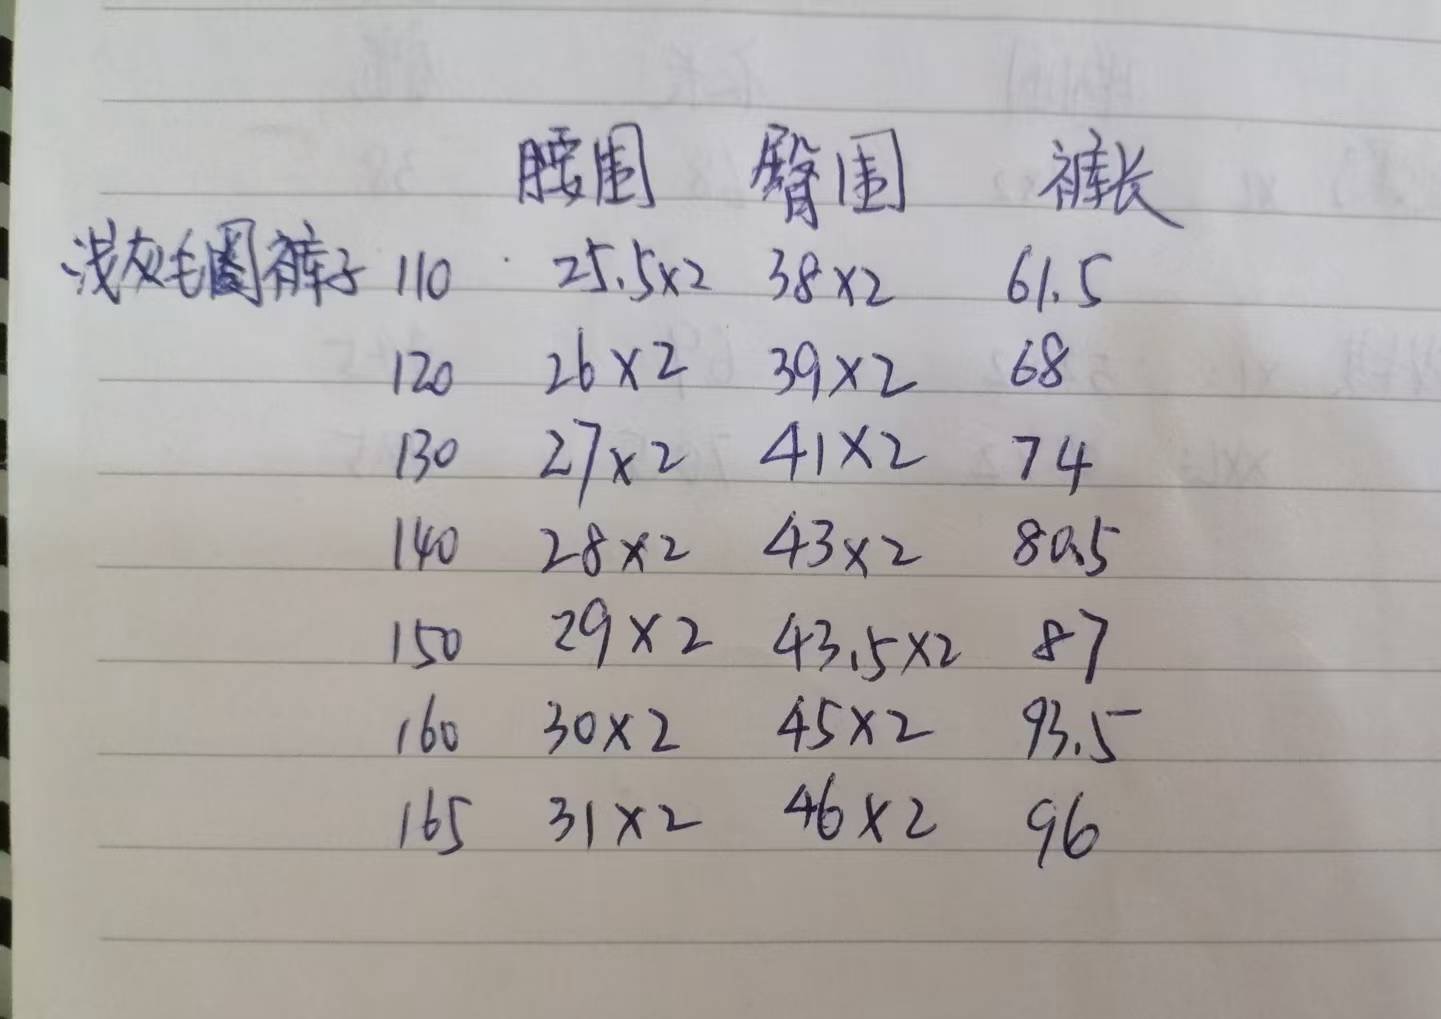 腰围 臀围 裤长
浅灰毛圈裤子 110 25.5×2 38×2 61.5
120 26×2 39×2 68
130 27×2 41×2 74
140 28×2 43×2 80.5
150 29×2 43.5×2 87
160 30×2 45×2 93.5
165 31×2 46×2 96